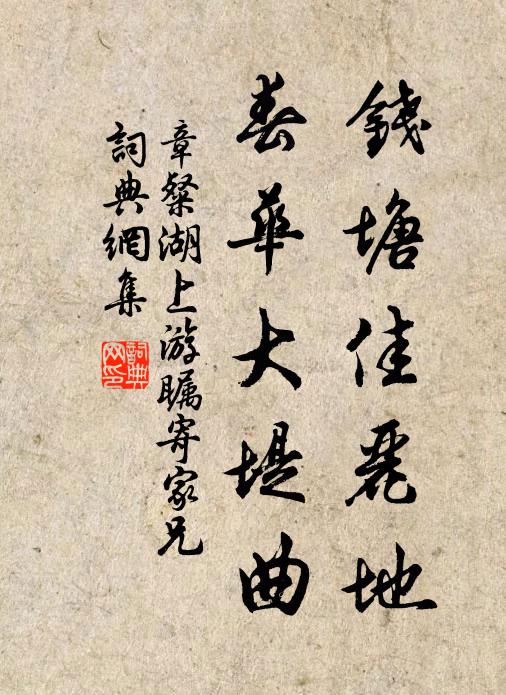 錢塘佳麗地
春華大堤曲
章粲湖上游瞩寄家兄
詞典網集
詞典網印